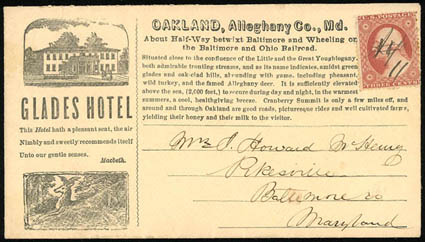 OAKLAND, Alleghany Co., Md.
About Half-Way betwixt Baltimore and Wheeling on
the Baltimore and Ohio Railroad.
Situated close to the confluence of the Little and the Great Youghiogany,
both admirable trouting streams, and as its name indicates, amidst green
glades and oak-clad hills, abounding with game, including pheasant,
wild turkey, and the famed Alleghany deer. It is sufficiently elevated
above the sea, (2,800 feet,) to secure during day and night, in the warmest
summers, a cool, healthgiving breeze. Cranberry Summit is only a few miles off, and
around and through Oakland are good roads, picturesque rides and well cultivated farms,
yielding their honey and their milk to the visitor.
GLADES HOTEL
This Hotel hath a pleasant seat, the air
Nimbly and sweetly recommends itself
Unto our gentle senses.
Macbeth.
U.S. POSTAGE
THREE CENTS
11
Mrs J. Howard McHenry
Pikesville
Baltimore co
Maryland